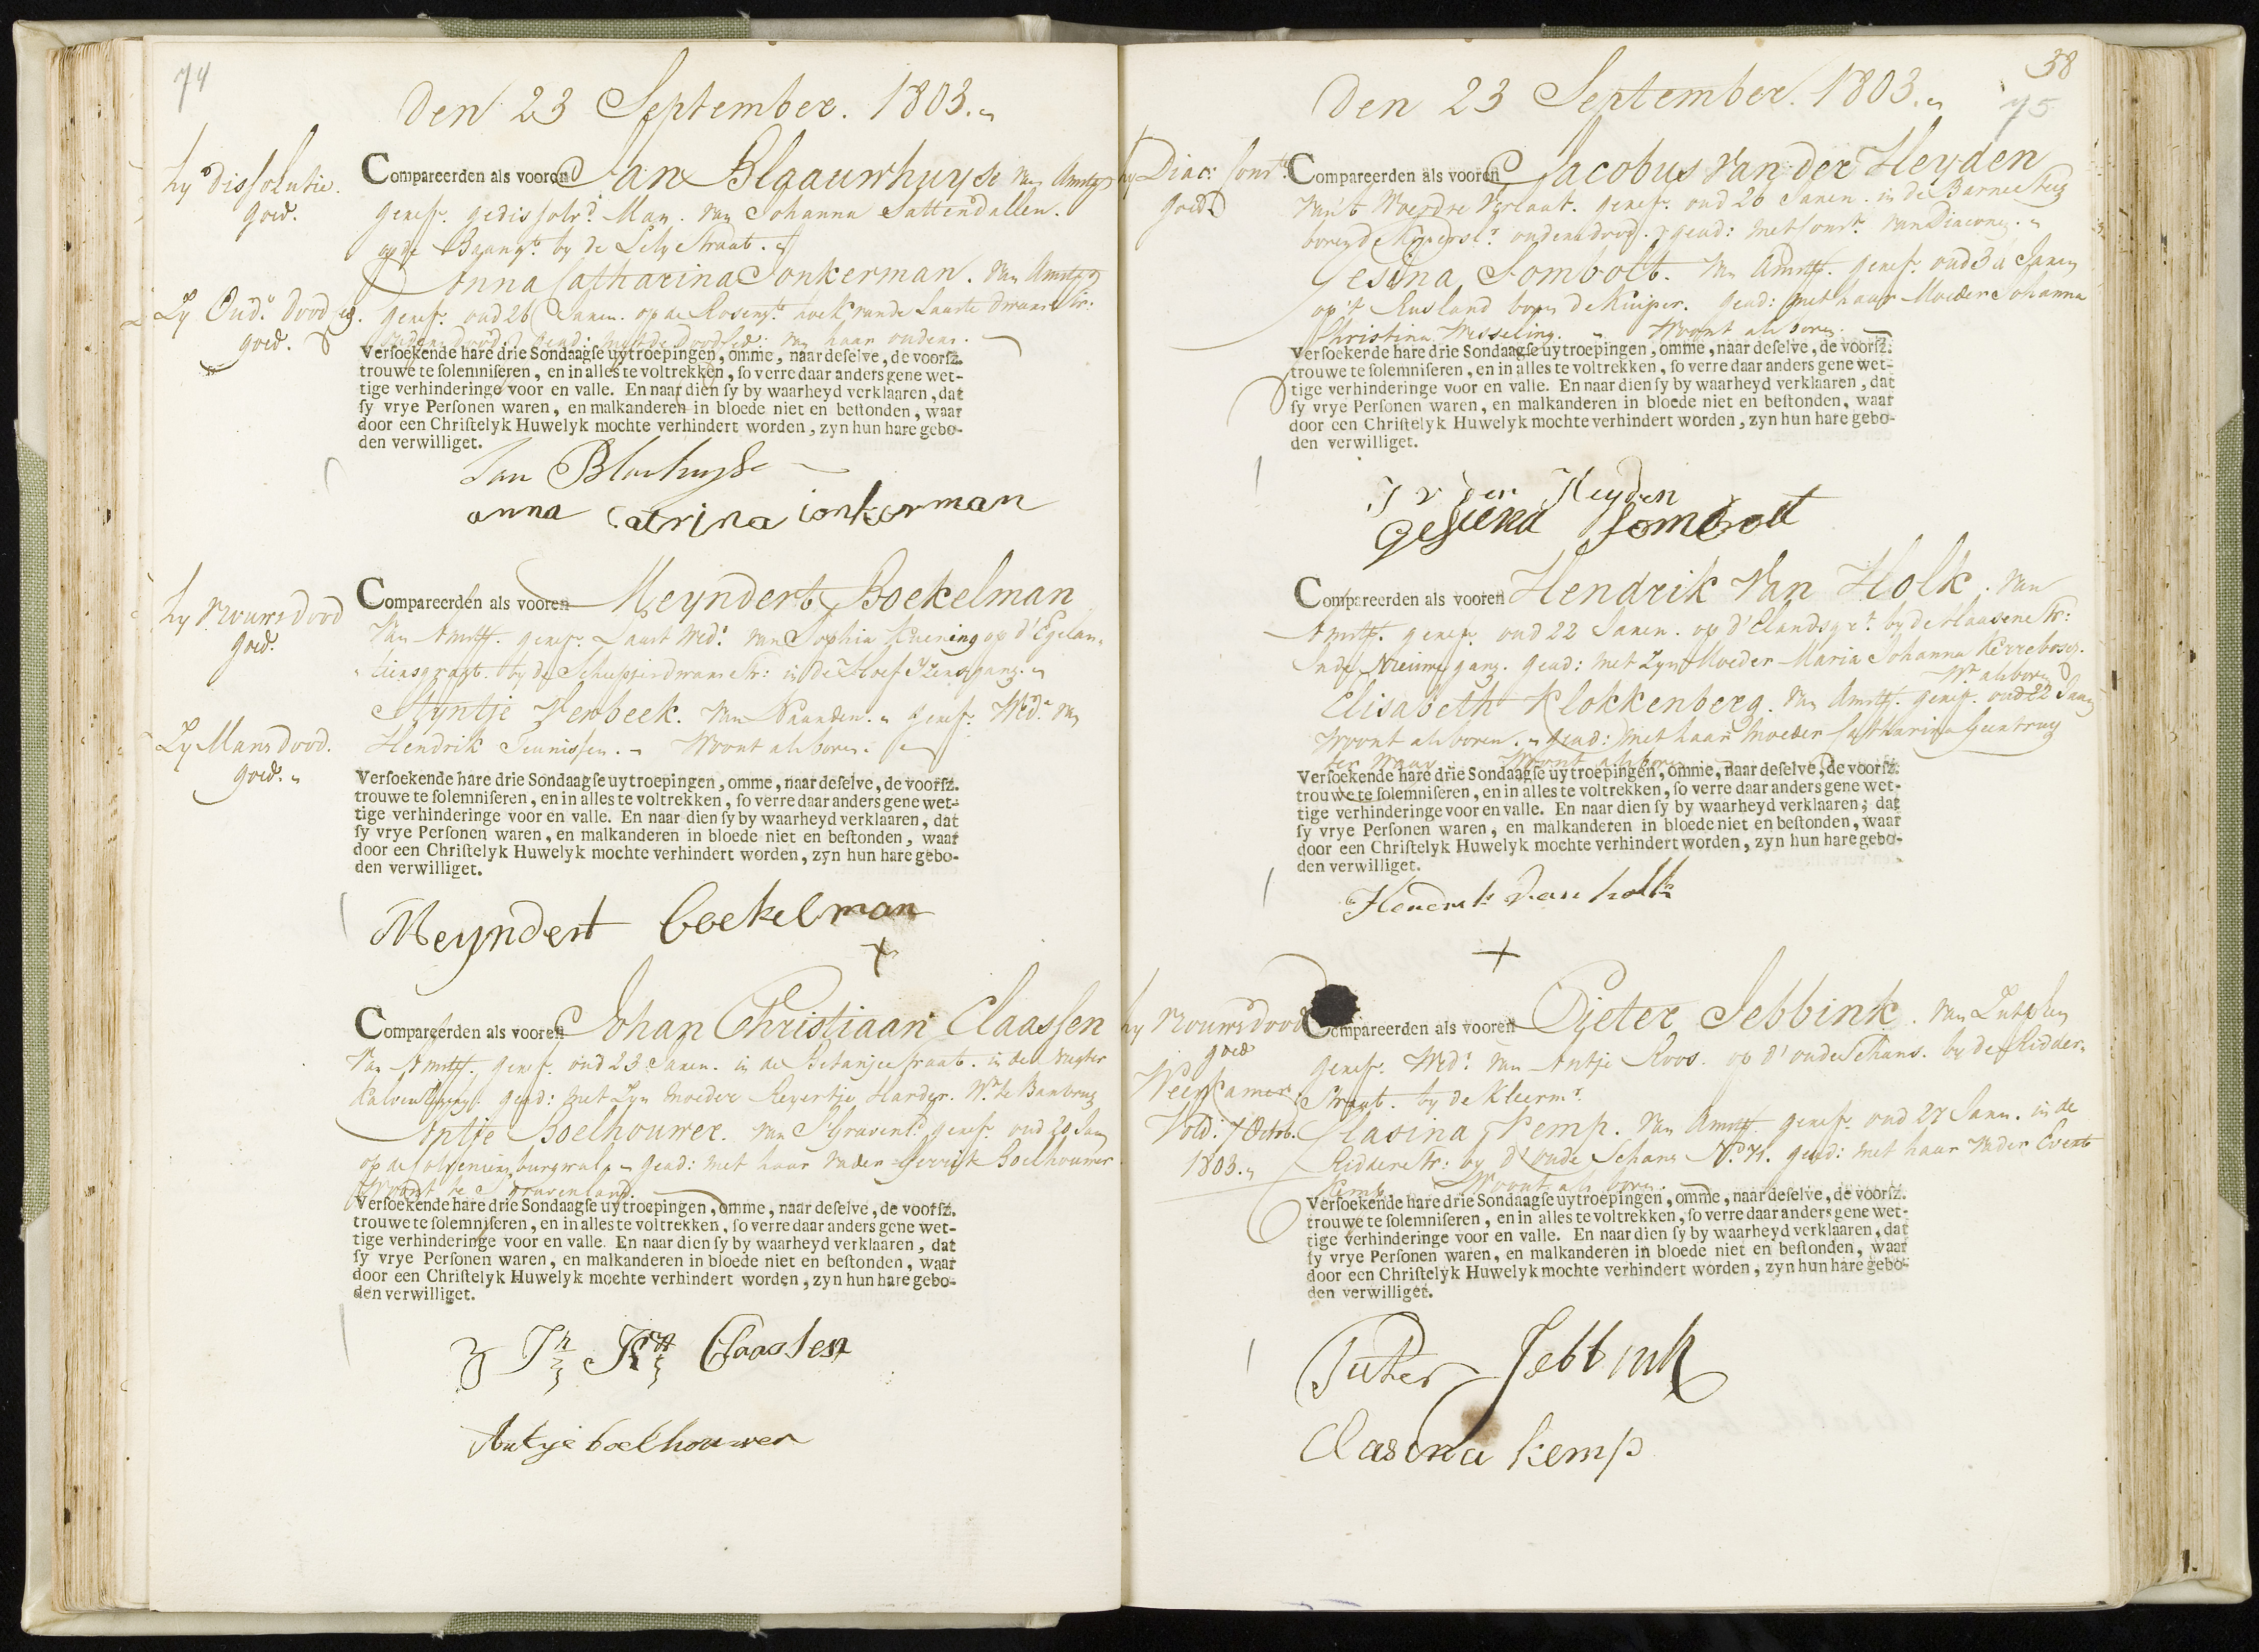 74
Den 23 September. 1803.
hy dissolutie.
goed.
Compareerden als vooren Jan Blaauwhuyse van Amst
geref. gedissolv. Man. van Johanna Sattendallen.
op de Baangt. by de Lely Straat.
Anna Catharina Jonkerman. van Amst
Zy Oud. dood
goed.
geref. oud 26 Jaren. op de Rosengt. hoek van de Laaste dwars Str.
van haar ouders.
Versoekende hare drie Sondaagse uytroepingen, omme, naar deselve, de voorsz.
trouwe te solemniseren, en in alles te voltrekken, so verre daar anders gene wet-
tige verhinderinge voor en valle. En naar dien sy by waarheyd verklaaren, dat
sy vrye Personen waren, en malkanderen in bloede niet en bestonden, waar
door een Christelyk Huwelyk mochte verhindert worden, zyn hun hare gebo-
den verwilliget.
Jan Blauhuyse
anna Catrina ionkerman
hy Vrouws dood
goed.
Compareerden als vooren Meyndert Boekelman
Van Amst. geref. Laast Wed. van Sophia Kuening op d'Egelan-
tiersgragt. by de dwars Str: in de Hoef Yzers gang.
Styntje Verbeek. van Naarden. geref. Wed. van
Zy Mans dood.
goed.
Hendrik Teunissen. Woont als boven.
Versoekende hare drie Sondaagse uytroepingen, omme, naar deselve, de voorsz.
trouwe te solemniseren, en in alles te voltrekken, so verre daar anders gene wet-
tige verhinderinge voor en valle. En naar dien sy by waarheyd verklaaren, dat
sy vrye Personen waren, en malkanderen in bloede niet en bestonden, waar
door een Christelyk Huwelyk mochte verhindert worden, zyn hun hare gebo-
den verwilliget.
Meyndert boekelman
X
Compareerden als vooren Johan Christiaan Claassen
Van Amst. geref. oud 23 Jaren. in de Betanjestraat. in de
gead: met Zyn moeder Harder. Wt. te
Antje Boelhouwer. van S'Gravenl. geref. oud 20 Jan
burgwal. gead: met haar Vader Gerrit Boelhouwer
Woont te S'gravenland.
Versoekende hare drie Sondaagse uytroepingen, omme, naar deselve, de voorsz.
trouwe te solemniseren, en in alles te voltrekken, so verre daar anders gene wet-
tige verhinderinge voor en valle. En naar dien sy by waarheyd verklaaren, dat
sy vrye Personen waren, en malkanderen in bloede niet en bestonden, waar
door een Christelyk Huwelyk mochte verhindert worden, zyn hun hare gebo-
den verwilliget.
Claassen
Antje boelhouwer
38
Den 23 September. 1803.
75
hy Diac: Const.
goed
Compareerden als vooren Jacobus van der Heyden
van't Woerdse Verlaat. geref. oud 26 Jaren. in de Barnesteeg
boven d ouders dood. gead: met Const. van Diacony.
Gesina Sombolt. van Amst. geref. oud 3 Jaren
op't Rusland boven d Kuiper. gead: met haar Moeder Johanna
Christina Wesseling. Woont als boven.
Versoekende hare drie Sondaagse uytroepingen, omme, naar deselve, de voorsz.
trouwe te solemniseren, en in alles te voltrekken, so verre daar anders gene wet-
tige verhinderinge voor en valle. En naar dien sy by waarheyd verklaaren, dat
sy vrye Personen waren, en malkanderen in bloede niet en bestonden, waar
door een Christelyk Huwelyk mochte verhindert worden, zyn hun hare gebo-
den verwilliget.
J v der Heyden
Gesiena Sombolt
Compareerden als vooren Hendrik Van Holk. Van
Amst. geref. oud 22 Jaren. op d'Elandsgrt. by de Haasene Str:
In de Nieuwe gang. gead: met Zyn Moeder Maria Johanna Kerrebosch.
Wt. als boven
Elisabeth Klokkenberg. van Amst. geref. oud 22 Jaren
Woont als boven. gead: met haar Moeder Catharina Geertruy
ter Maar. Woont als boven
Versoekende hare drie Sondaagse uytroepingen, omme, naar deselve, de voorsz.
trouwe te solemniseren, en in alles te voltrekken, so verre daar anders gene wet-
tige verhinderinge voor en valle. En naar dien sy by waarheyd verklaaren, dat
sy vrye Personen waren, en malkanderen in bloede niet en bestonden, waar
door een Christelyk Huwelyk mochte verhindert worden, zyn hun hare gebo-
den verwilliget.
Hendrik van holk
X
hy Vrouws dood
goed
Weeskamer
Vold: 7 Octob.
1803.
Compareerden als vooren Pieter Jebbink. van Zutphen
geref. Wed. van Antje Roos. op d'oude Schans. by de Ridder-
Straat. by de Kleerm.
Clasina Kemp. van Amst. geref. oud 27 Jaren. in de
Ridderstr: by d'oude Schans No. 71. gead: met haar Vader Evert
Kemp. Woont als boven.
Versoekende hare drie Sondaagse uytroepingen, omme, naar deselve, de voorsz.
trouwe te solemniseren, en in alles te voltrekken, so verre daar anders gene wet-
tige verhinderinge voor en valle. En naar dien sy by waarheyd verklaaren, dat
sy vrye Personen waren, en malkanderen in bloede niet en bestonden, waar
door een Christelyk Huwelyk mochte verhindert worden, zyn hun hare gebo-
den verwilliget.
Pieter Jebbink
Clasina kemp